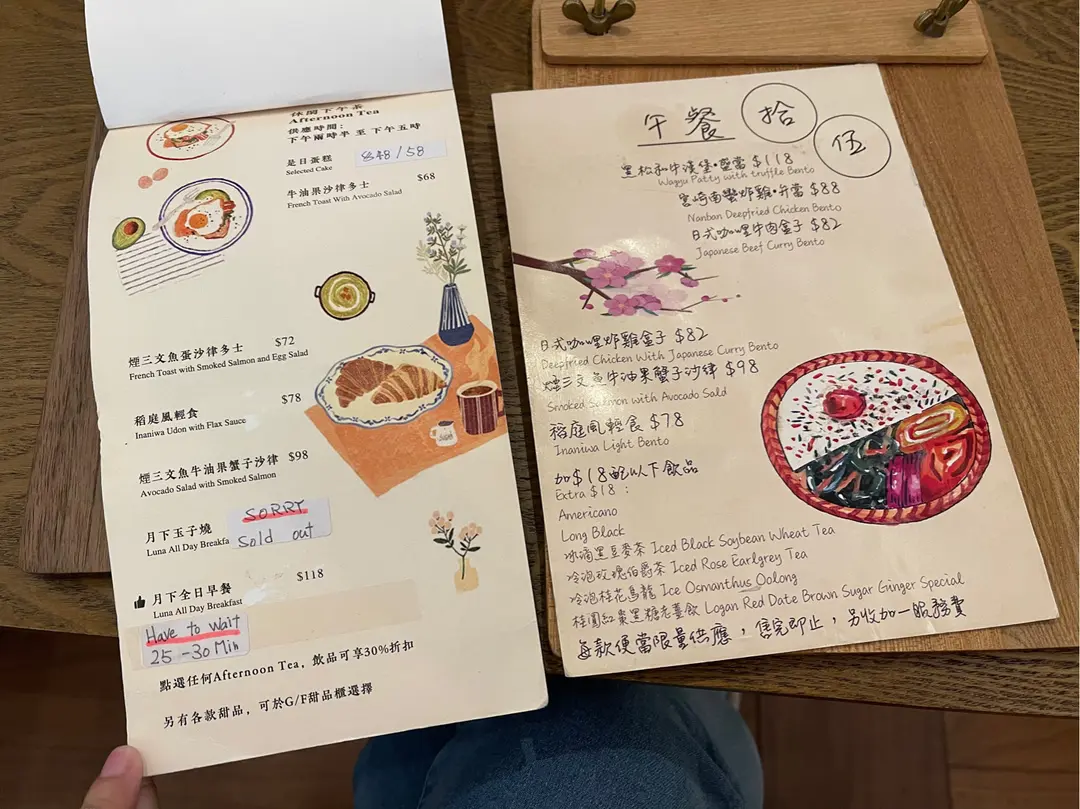 休閒下午茶
Afternoon Tea
供應時間：
下午兩時半 至 下午五時
是日蛋糕
Selected Cake
$48/58
牛油果沙律多士 $68
French Toast With Avocado Salad
煙三文魚蛋沙律多士 $72
French Toast with Smoked Salmon and Egg Salad
稻庭風輕食 $78
Inaniwa Udon with Flax Sauce
煙三文魚牛油果蟹子沙律 $98
Avocado Salad with Smoked Salmon
月下玉子燒
Luna All Day Breakfa
SORRY
Sold out
月下全日早餐 $118
Luna All Day Breakfast
Have to wait
25-30 Min
點選任何Afternoon Tea, 飲品可享30%折扣
另有各款甜品, 可於G/F甜品櫃選擇
午餐 拾伍
黑松和牛漢堡·便當 $118
Wagyu Patty with truffle Bento
宮崎南蠻炸雞·弁當 $88
Nanban Deepfried Chicken Bento
日式咖哩牛肉盒子 $82
Japanese Beef Curry Bento
日式咖哩炸雞盒子 $82
Deepfried Chicken With Japanese Curry Bento
煙三文魚牛油果蟹子沙律 $98
Smoked Salmon with Avocado Sald
稻庭風輕食 $78
Inaniwa Light Bento
加$18配以下飲品
Extra $18 :
Americano
Long Black
冰滴黑豆麥茶 Iced Black Soybean Wheat Tea
冷泡玫瑰伯爵茶 Iced Rose Earlgrey Tea
冷泡桂花烏龍 Ice Osmanthus Oolong
桂圓紅棗黑糖老薑飲 Logan Red Date Brown Sugar Ginger Special
每款便當限量供應，售完即止，另收加一服務費